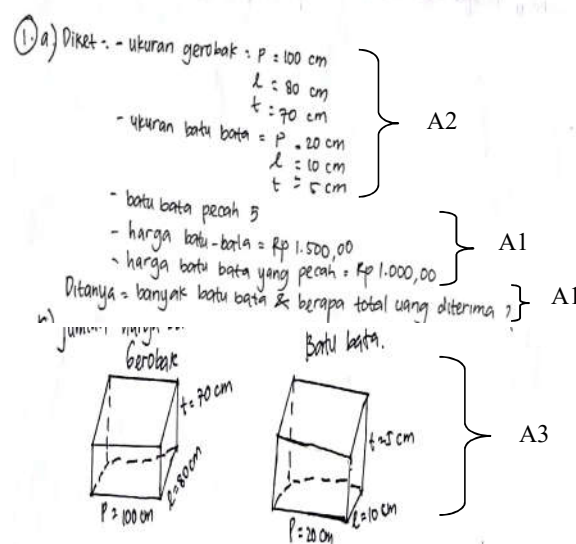 1. a) Diket : - ukuran gerobak : P = 100 cm
l = 80 cm
t = 70 cm
A2
- ukuran batu bata = P = 20 cm
l = 10 cm
t = 5 cm
- batu bata pecah 5
- harga batu-bata = Rp 1.500,00
A1
- harga batu bata yang pecah = Rp 1.000,00
Ditanya = banyak batu bata & berapa total uang diterima ?
A1
Gerobak
Batu bata.
t = 70 cm
l = 80 cm
P = 100 cm
t = 5 cm
l = 10 cm
P = 20 cm
A3